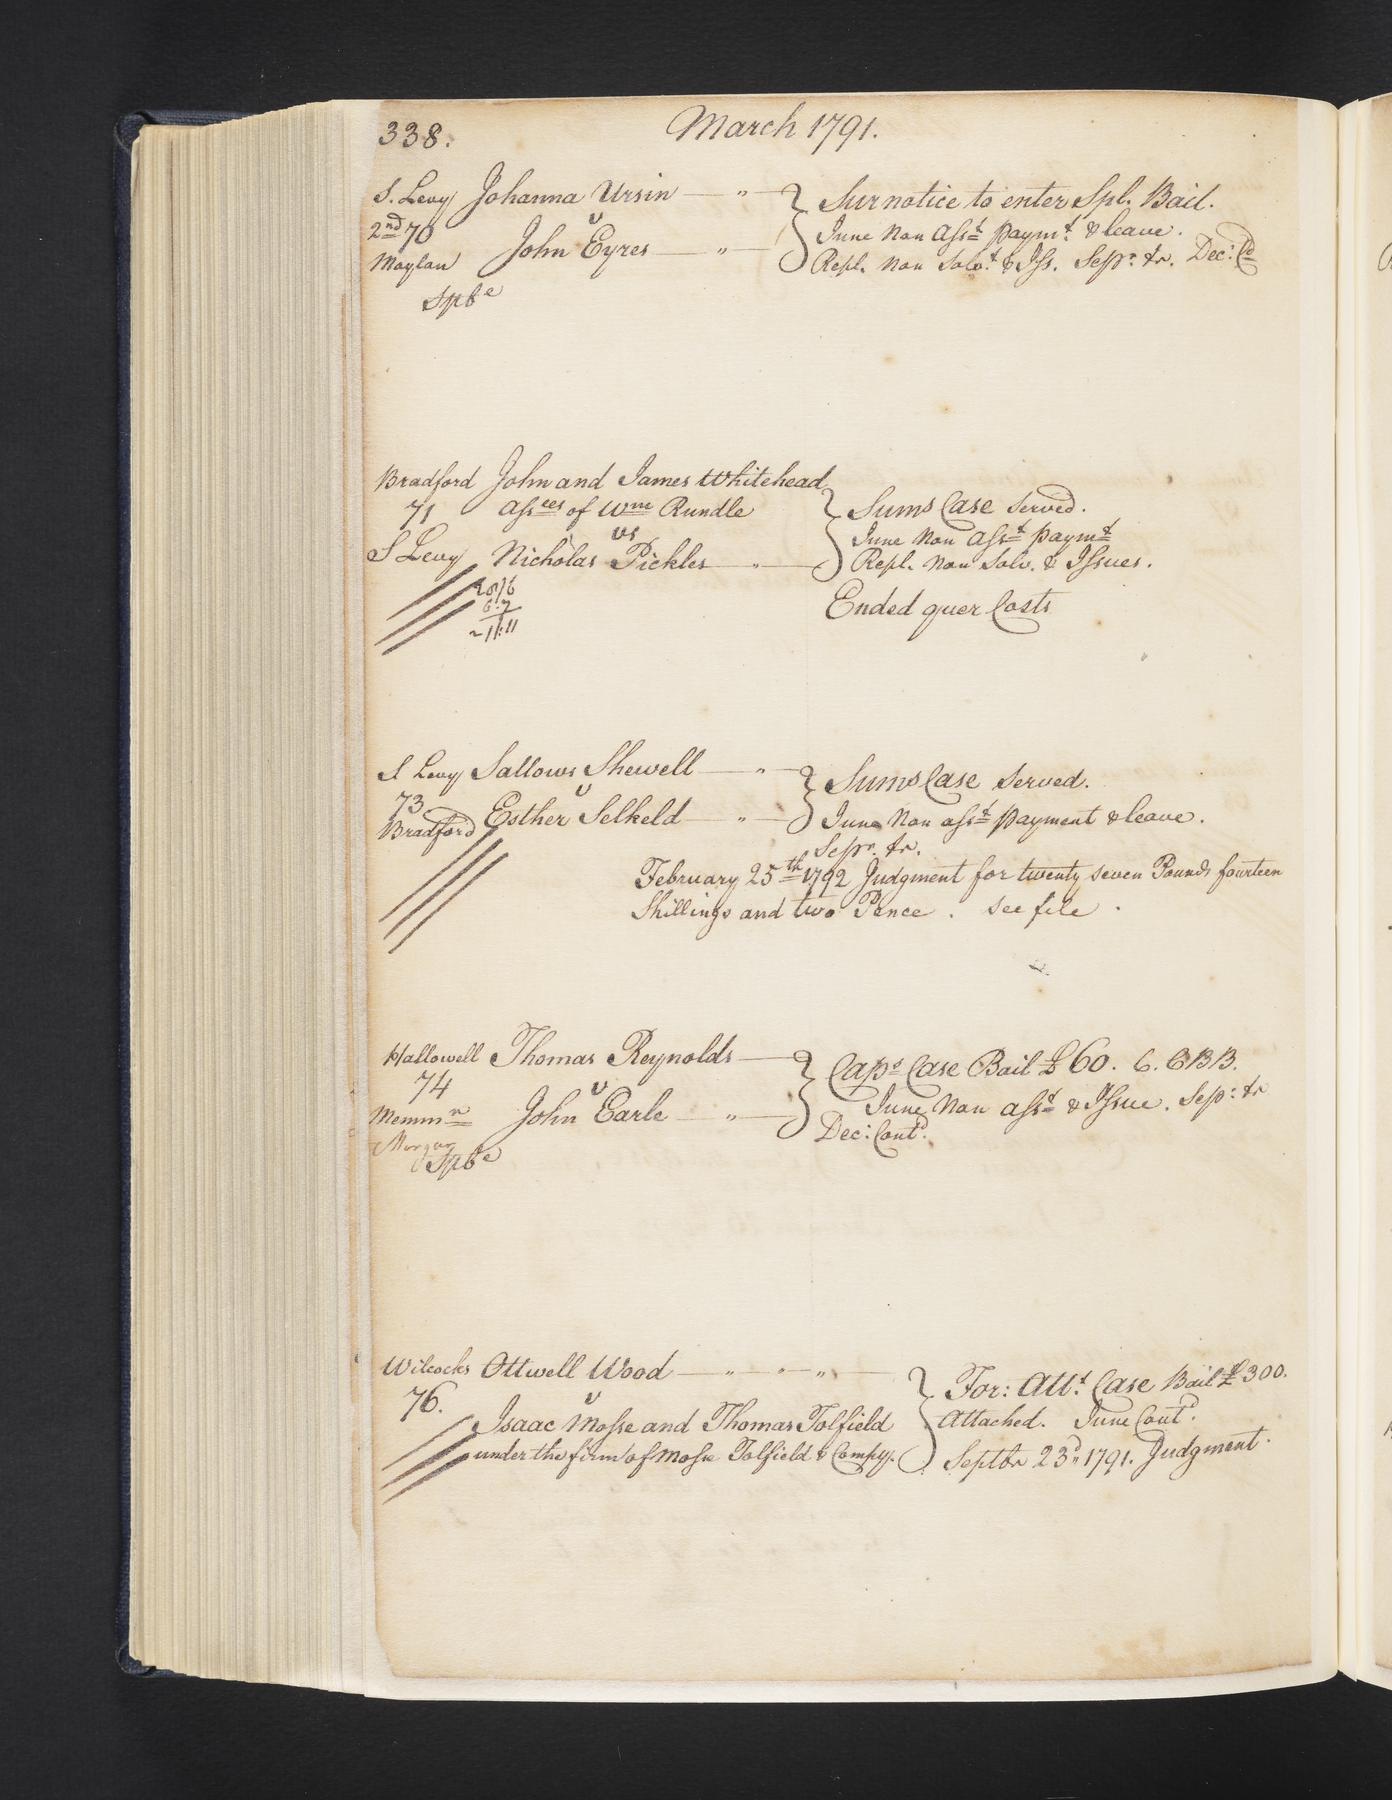 338. March 1791.
S. Levy Johanna Ursin — " — Sur notice to enter Spl. Bail.
2nd 70 v June Non Asst paymt. & leave.
Moylan John Eyres — " — Repl. Non Solvt. & Iss. Sepr. tr. Dec: Cd
Spbe
Bradford John and James Whitehead
71 Assees of Wm Rundle Sums Case served.
vs June Non Asst paymt
S Levy Nicholas Pickles — " — Repl. Non Solv. & Issues.
Ended quer Costs
6:7
11:11
S Levy Sallows Shewell — " — Sums Case served.
73 v
Bradford Esther Selkeld — " — June Non asst payment & leave.
Sepr. tr.
February 25th 1792 Judgment for twenty seven Pounds fourteen
Shillings and two Pence . see file .
Hallowell Thomas Reynolds — Caps Case Bail £60. C. CBB.
74 v June Non asst & Issue. Sep: tr
Memmn John Earle — " — Dec: Contd.
Morgan
Spbe
Wilcocks Ottwell Wood — " — " — For: Att. Case Bail £300.
76. v
Isaac Mosse and Thomas Tolfield Attached. June Contd.
under the firm of Mosse Tolfield & Compy. Septbr 23d 1791. Judgment.